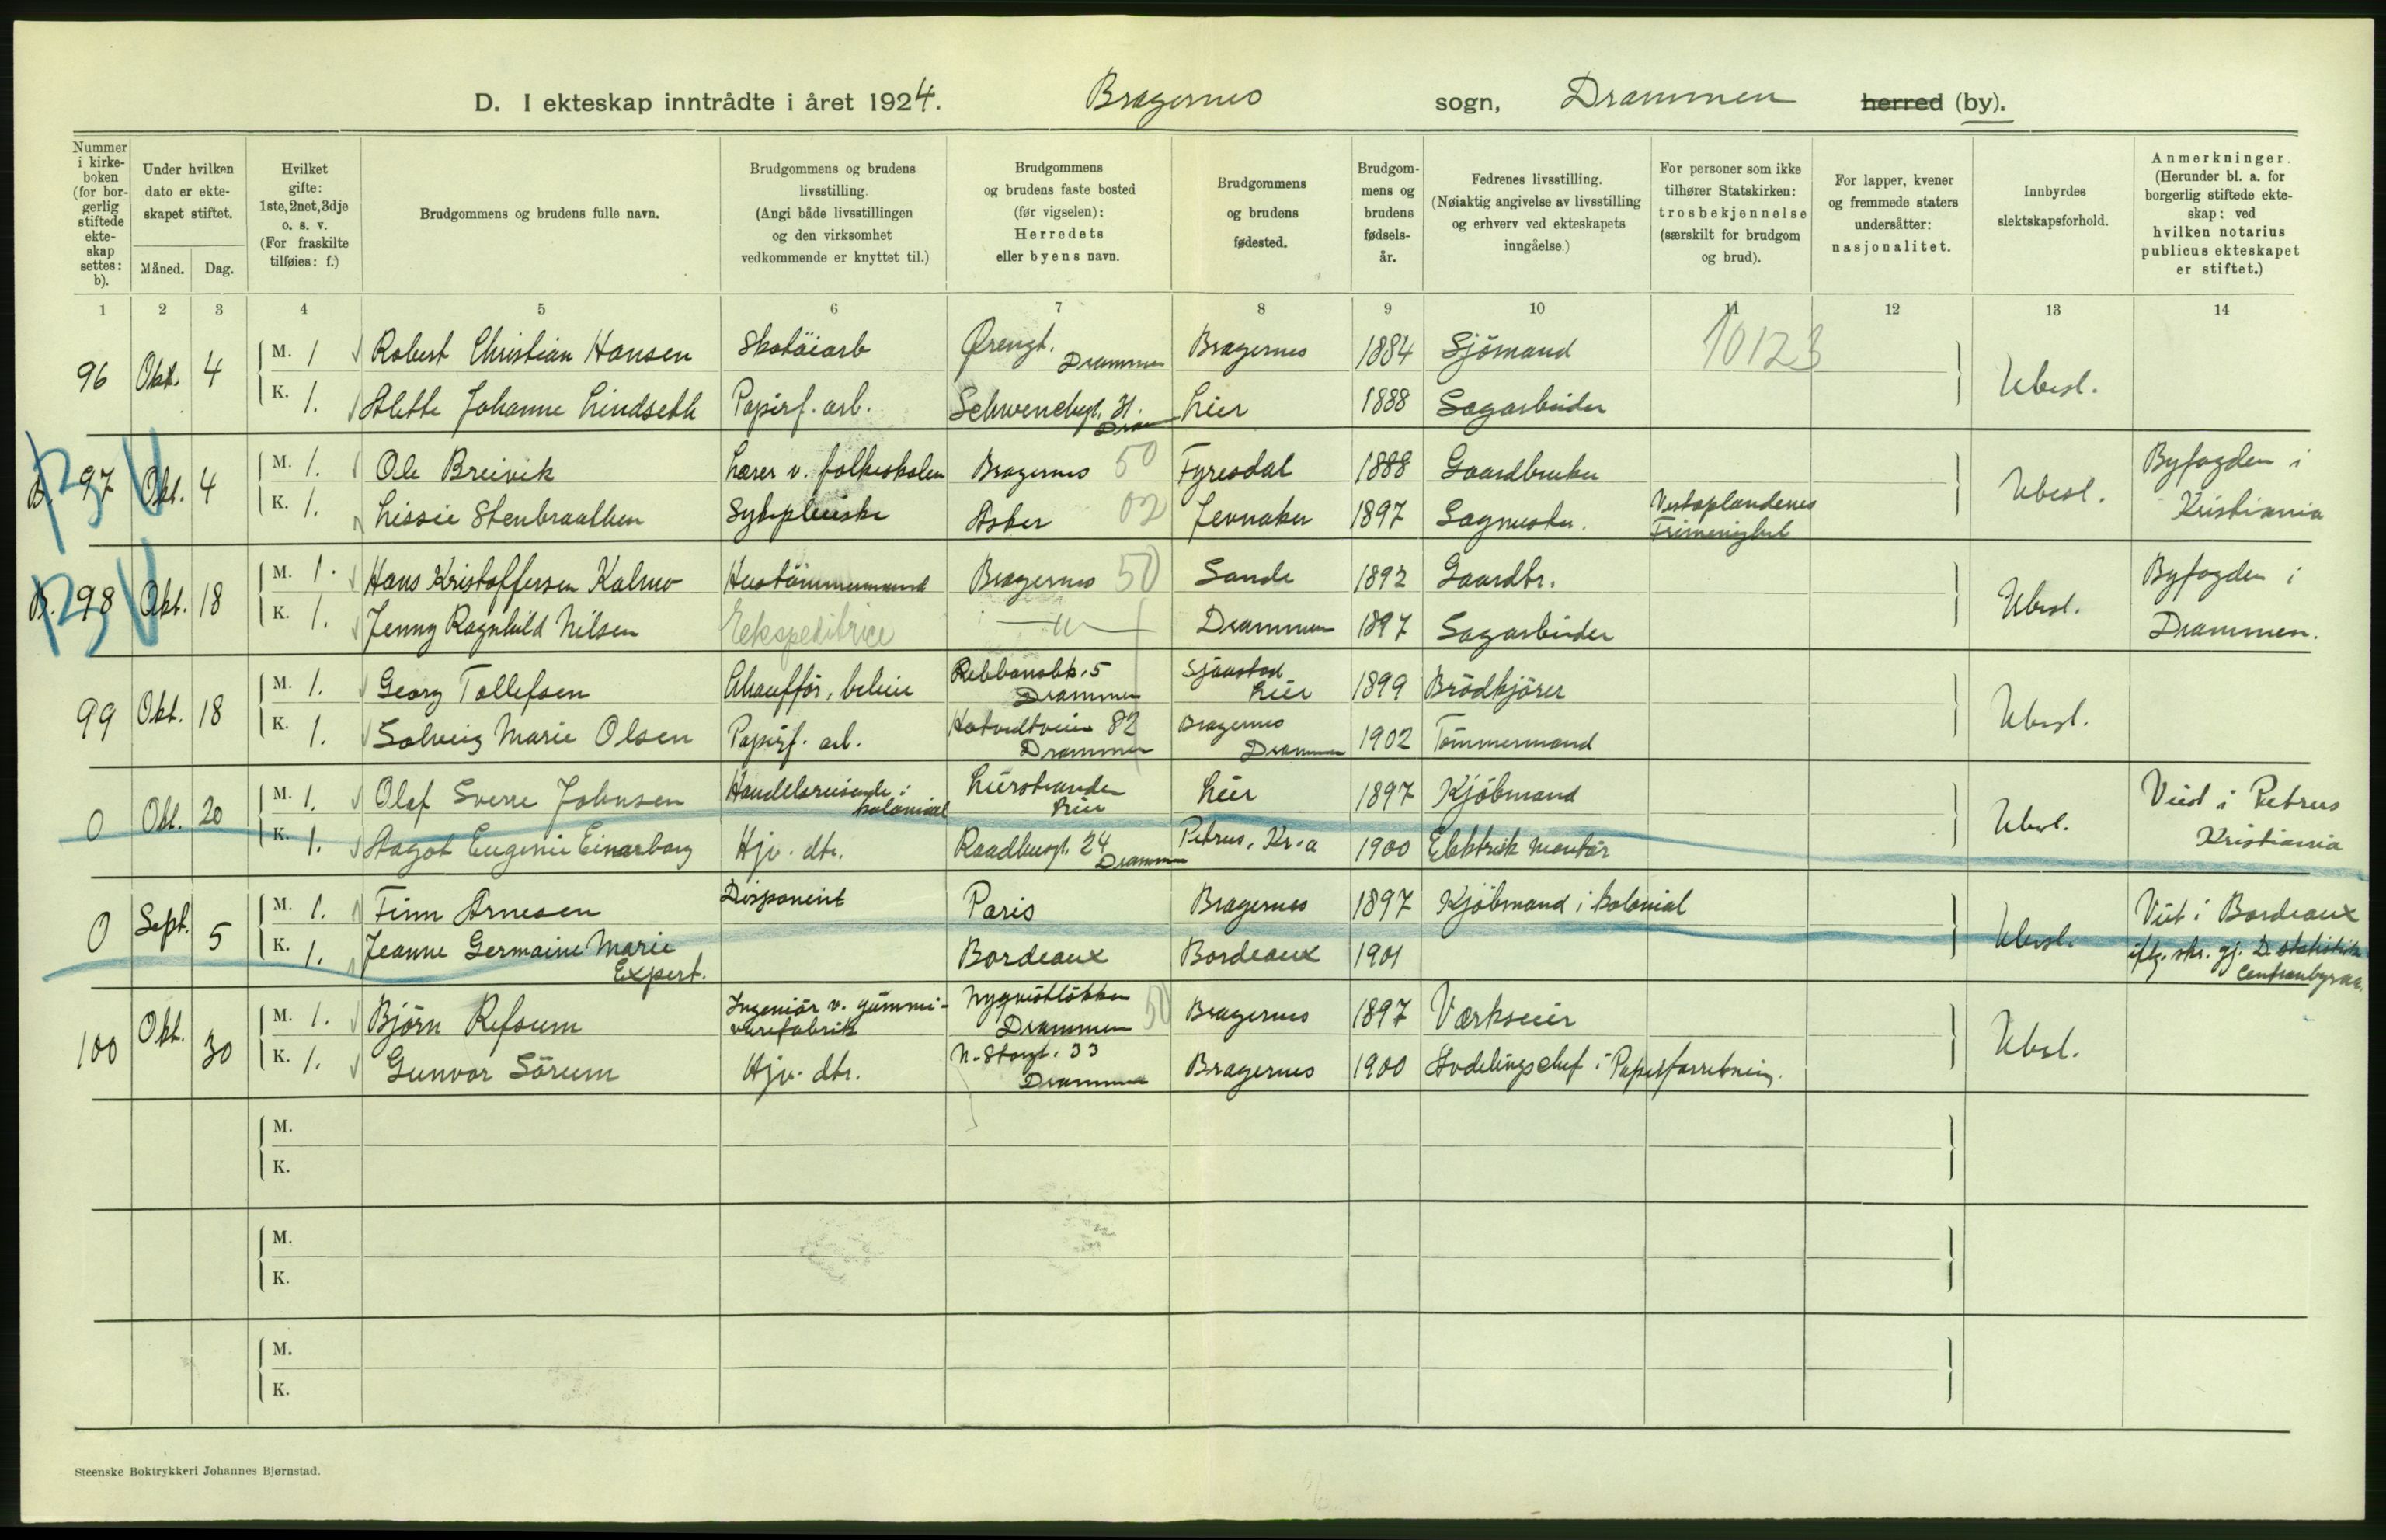 D. I ekteskap inntrådte i året 1924. Bragernes sogn, Drammen herred (by).
Nummer i kirke-boken (for bor-gerlig stiftede ekte-skap settes: b).
Under hvilken dato er ekte-skapet stiftet.
Måned. Dag.
Hvilket gifte: 1ste, 2net, 3dje o. s. v. (For fraskilte tilføies: f.)
Brudgommens og brudens fulle navn.
Brudgommens og brudens livsstilling. (Angi både livsstillingen og den virksomhet vedkommende er knyttet til.)
Brudgommens og brudens faste bosted (før vigselen): Herredets eller byens navn.
Brudgommens og brudens fødested.
Brudgom-mens og brudens fødsels-år.
Fedrenes livsstilling. (Nøiaktig angivelse av livsstilling og erhverv ved ekteskapets inngåelse.)
For personer som ikke tilhører Statskirken: trosbekjennelse (særskilt for brudgom og brud).
For lapper, kvener og fremmede staters undersåtter: nasjonalitet.
Innbyrdes slektskapsforhold.
Anmerkninger. (Herunder bl. a. for borgerlig stiftede ekte-skap: ved hvilken notarius publicus ekteskapet er stiftet.)
1 2 3 4 5 6 7 8 9 10 11 12 13 14
96 Okt. 4 M. 1 Robert Christian Hansen Skotöiarb Örengt. Drammen Bragernes 1884 Sjömand 10123 Ubesl.
K. 1. Alette Johanne Lindseth Papirf. arb. Schwenckegt. 31. Dram Lier 1888 Sagarbeider
B. 97 Okt. 4 M. 1. Ole Breivik Lærer v. folkeskolen Bragernes 50 Fyresdal 1888 Gaardbruker Ubesl. Byfogden i
K. 1. Lissie Stenbraathen Sykepleiske Asker 02 Jevnaker 1897 Sagmester. Vestoplandenes Frimenighet Kristiania
B. 98 Okt. 18 M. 1. Hans Kristoffersen Kalmo Hustömmermand Bragernes 50 Sande 1892 Gaardbr. Ubesl. Byfogden i
K. 1. Jenny Ragnhild Nilsen Ekspeditrice — " — Drammen 1897 Sagarbeider Drammen.
99 Okt. 18 M. 1. Georg Tollefsen Chaufför, bileier Rebbansbk. 5 Drammen Sjaastad Lier 1899 Brödkjörer Ubesl.
K. 1. Solveig Marie Olsen Papirf. arb. Hotvedtveien 82 Drammen Bragernes Drammen 1902 Tömmermand
0 Okt. 20 M. 1. Olaf Sverre Johnsen Handelsreisende i kolonial Lierstranden Lier Lier 1897 Kjöbmand Ubesl. Viet i Petrus
K. 1. Aagot Eugenie Einarborg Hjv. dtr. Raadhusgt. 24 Drammen Petrus, Kr.a 1900 Elektrisk montör Kristiania
0 Sept. 5 M. 1. Finn Arnesen Disponent Paris Bragernes 1897 Kjöbmand i kolonial Ubesl. Viet i Bordeaux
K. 1. Jeanne Germaine Marie Expert. Bordeaux Bordeaux 1901 iflg. skr. gj. D. statistiske Centralbyraa.
100 Okt. 30 M. 1. Björn Refsum Ingeniör v. gummi-varefabrik Nyqvistlökken Drammen 50 Bragernes 1897 Værkseier Ubesl.
K. 1. Gunvor Sörum Hjv. dtr. N. Storgt. 33 Drammen Bragernes 1900 Avdelingschef i Papirforretning.
M.
K.
M.
K.
M.
K.
Steenske Boktrykkeri Johannes Bjørnstad.